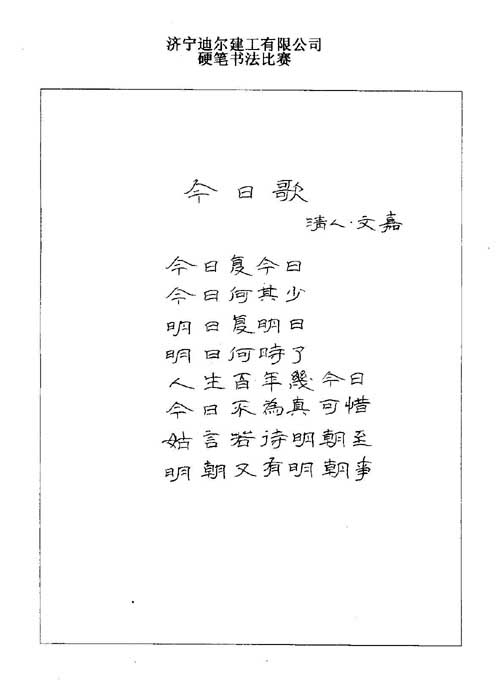 济宁迪尔建工有限公司
硬笔书法比赛
今日歌
清人·文嘉
今日复今日
今日何其少
明日复明日
明日何時了
人生百年幾今日
今日不為真可惜
姑言若待明朝至
明朝又有明朝事